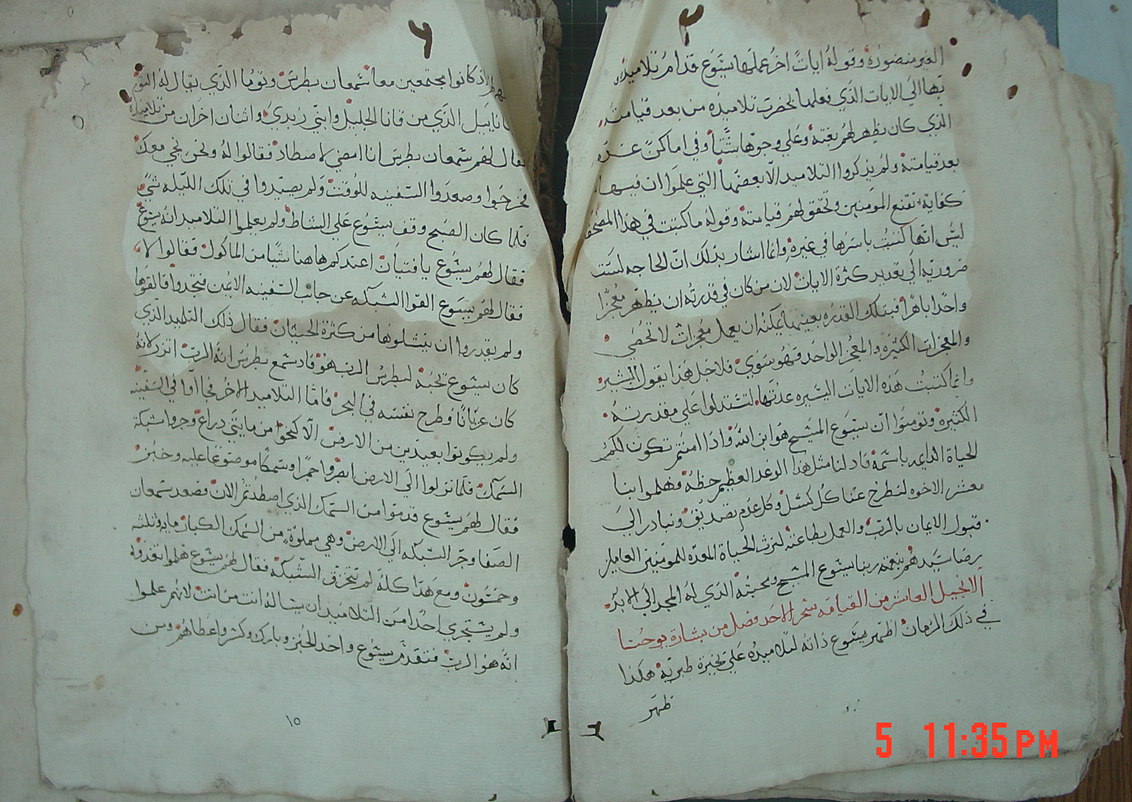 الغير منضوره وقوله ايات اخر عملها يسوع قدام تلاميذه
بها الى الايات الذي فعلها بحضرت تلاميذه من بعد قيامته
الذي كان يظهر لهم بغته وعلي وجوها شتا وفي اماكن عده
بعد قيامته ولم يذكروا التلاميد الا بعضها التي علموا ان فيها
كفايه تقنع المومنين وتحقق لهم قيامته وقوله ما كتبت في هذا المصحف
ليس انها كتبت باسرها في غيره وانما اشار بذلك ان الحاجه ليست
ضروريه الى تعديد كثرة الايات لان من كان في قدرته ان يظهر معجزا
واحدا باهرا فبتلك القدره بعينها يمكنه ان يعمل معجزات لا تحصي
والمعجزات الكثيره والمعجز الواحد فهو يتنوي فلاجل هذا يقول البشير
وانما كتبت هذه الايات اليسيره عدتها لتستدلوا علي مقدرته
الكثيره وتومنوا ان يسوع المسيح هو ابن الله واذا امنتم تكون لكم
الحياة الدايمه باسمه فاد لنا مثل هذا الوعد العظيم حظه فهلموا بنا
معشر الاخوه لنطرح عنا كل كسل وكل عدم تصديق ونبادر الى
قبول الايمان بالرب والعمل بطاعته لنرث الحياة المعده للمومنين العاملين
رضا سيدهم بنعمه ربنا يسوع المسيح ومحبته الذي له المجد الى الابد
الانجيل العاشر من القيامه سحر الاحد فصل من بشارة يوحنا
في ذلك الزمان اظهر يسوع ذاته لتلاميذه علي بحيرة طبريه هكذا
ظهر
كانوا مجتمعين معا شمعان بطرس وتوما الذي يقال له التوم
ناتاناييل الذي من قانا الجليل وابني زبدي واثنان اخران من تلاميذه
فقال لهم شمعان بطرس انا امضي لاصطاد فقالوا له ونحن نجي معك
فخرجوا وصعدوا السفينه للوقت ولم يصيدوا في تلك الليله شي
فلما كان الصبح وقف يسوع علي الشاط ولم يعلموا التلاميد انه يسوع
فقال لهم يسوع يا فتيان اعندكم هاهنا شيا من الماكول فقالوا لا
فقال لهم يسوع القوا الشبكه عن جانب السفينه الايمن فتجدوا فالقوها
ولم يقدروا ان ينشلوها من كثرة الحيتان فقال ذلك التلميد الذي
كان يسوع يحبه لبطرس الرب هو فاد سمع بطرس انه الرب اتزر لانه
كان عريانا وطرح نفسه في البحر فاما التلاميد الاخر فجاوا في السفينه
ولم يكونوا بعيدين من الارض الا كنحو من مايتي دراع وجروا شبكة
السمك فلما نزلوا الى الارض ابصروا جمرا وسمكا موضوعا عليه وخبز
فقال لهم يسوع قدموا من السمك الذي اصطدتم الان فصعد شمعان
الصفا وجر الشبكه الى الارض وهي مملوة من السمك الكبار مايه وثلثه
وخمسون ومع هذا كله لم تتخرق الشبكه فقال لهم يسوع هلموا تغدوا
ولم يستجري احدا من التلاميد ان يساله انت من انت لانهم علموا
انه هو الرب فتقدم يسوع واخد الخبز وبارك وكسر واعطاهم ومن
١٥
5 11:35 PM